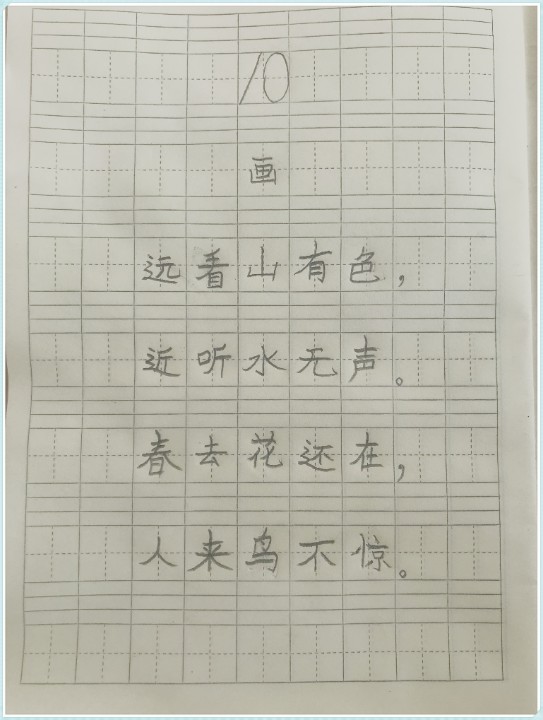 10
画
远看山有色，
近听水无声。
春去花还在，
人来鸟不惊。